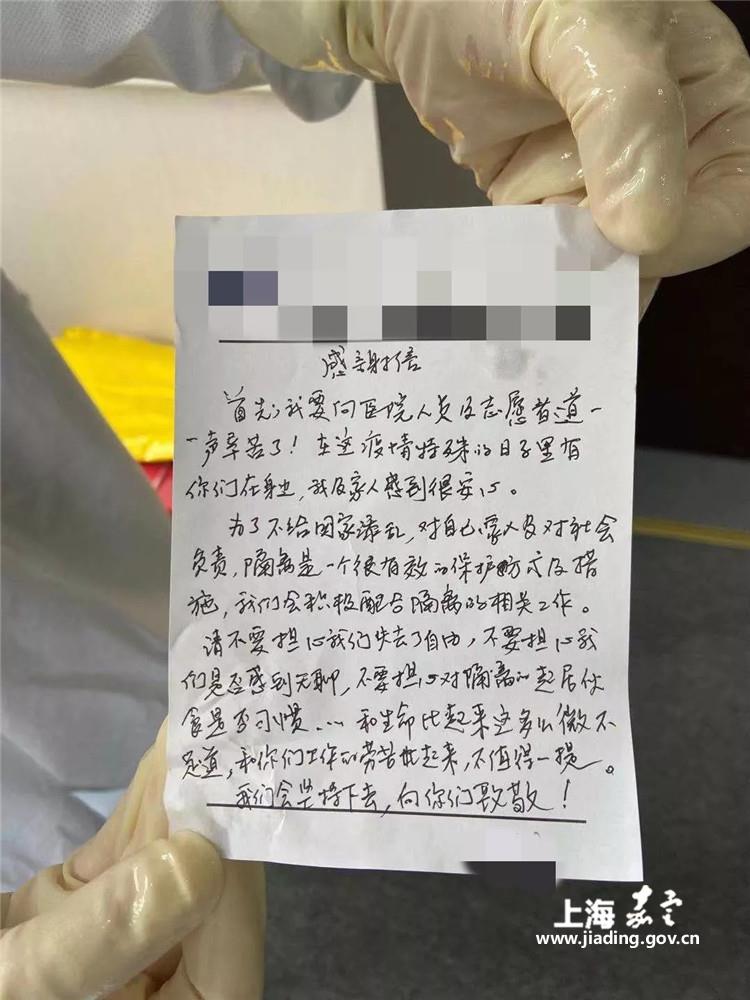 感谢信
首先，我要向医院人员及志愿者道一
一声辛苦了！在这疫情特殊的日子里有
你们在身边，我及家人感到很安心。
为了不给国家添乱，对自己家人及对社会
负责，隔离是一个很有效的保护方式及措
施，我们会积极配合隔离的相关工作。
请不要担心我们失去了自由，不要担心我
们是否感到无聊，不要担心对隔离的起居伙
食是否习惯……和生命比起来这多么微不
足道，和你们工作的劳苦比起来，不值得一提。
我们会坚持下去，向你们致敬！
上海嘉定
www.jiading.gov.cn